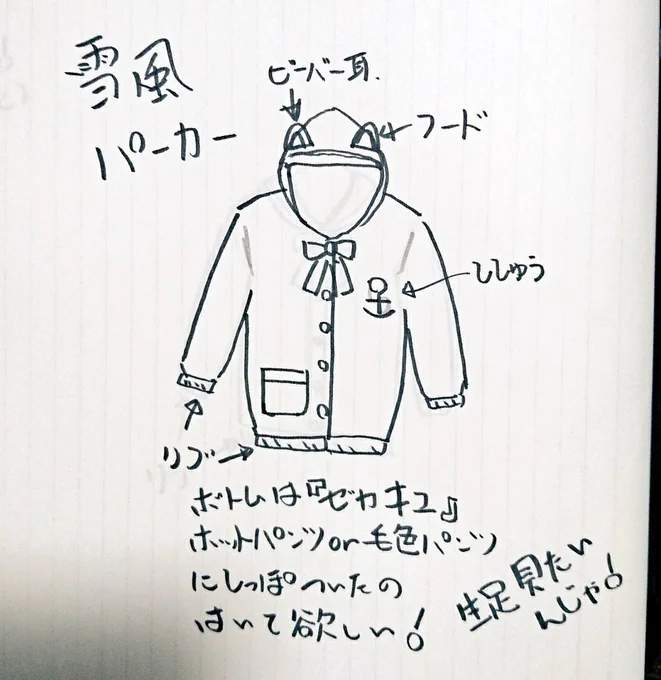 雪風
パーカー
ビーバー耳.
フード
ししゅう
リブ
ボトムは『ゼカキユ』
ホットパンツor毛色パンツ
にしっぽついたの
はいて欲しい!
生足見たい
んじゃ!